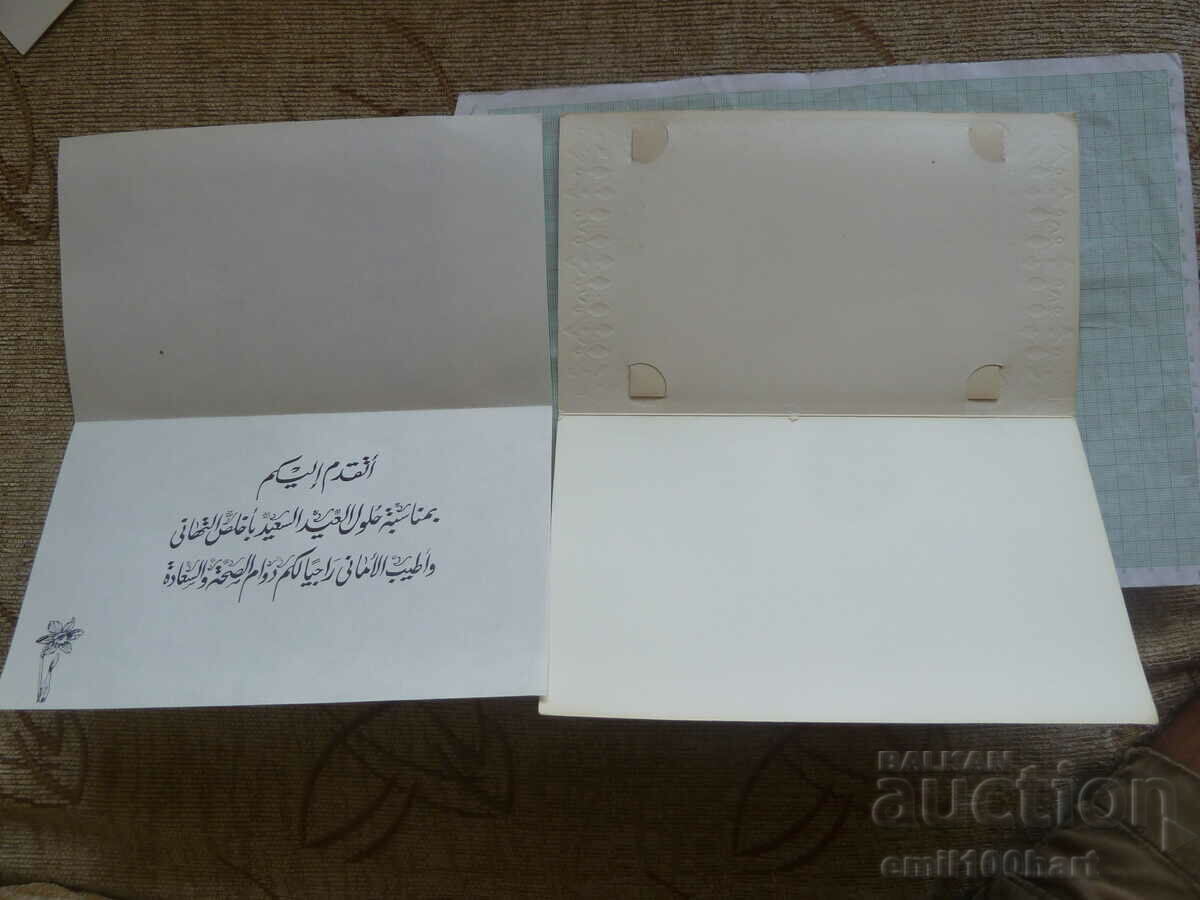 أتقدم إليكم
بمناسبة حلول العيد السعيد بأخلص التهاني
وأطيب الأماني راجيا لكم دوام الصحة والسعادة
BALKAN
auction
emil100hart